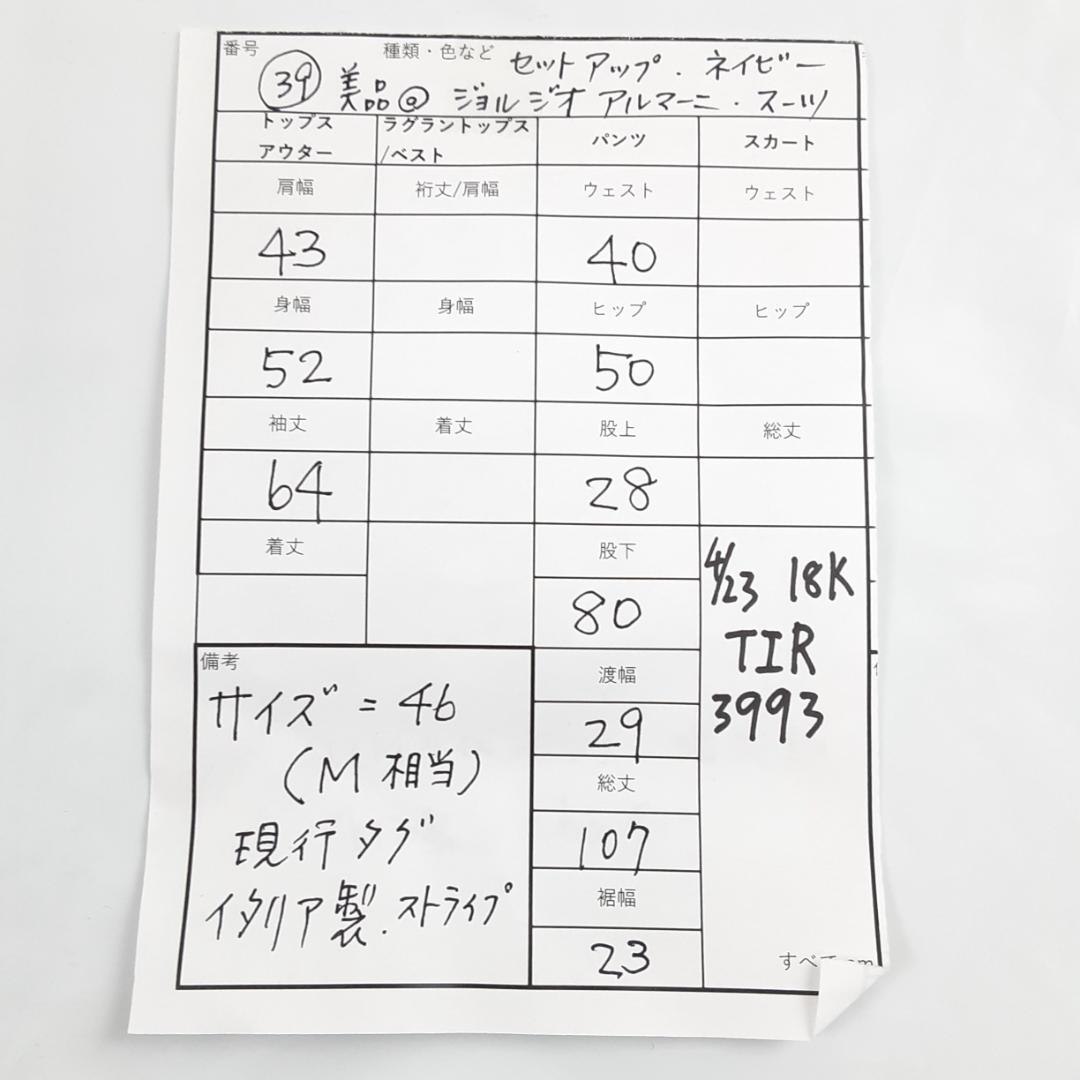 番号 種類・色など セットアップ.ネイビー
㊴ 美品@ ジョルジオ アルマーニ・スーツ
トップス ラグラントップス パンツ スカート
アウター /ベスト
肩幅 裄丈/肩幅 ウェスト ウェスト
43 40
身幅 身幅 ヒップ ヒップ
52 50
袖丈 着丈 股上 総丈
64 28
着丈 股下
80
4/23 18K
TIR
3993
渡幅
29
総丈
107
裾幅
23
備考
サイズ=46
(M相当)
現行タグ
イタリア製.ストライプ
すべて